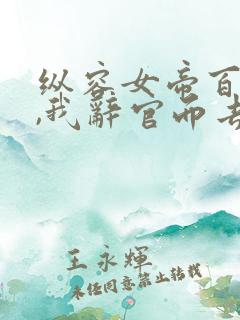 纵容女帝百
,我辞官而去
王永辉
未经同意禁止转载